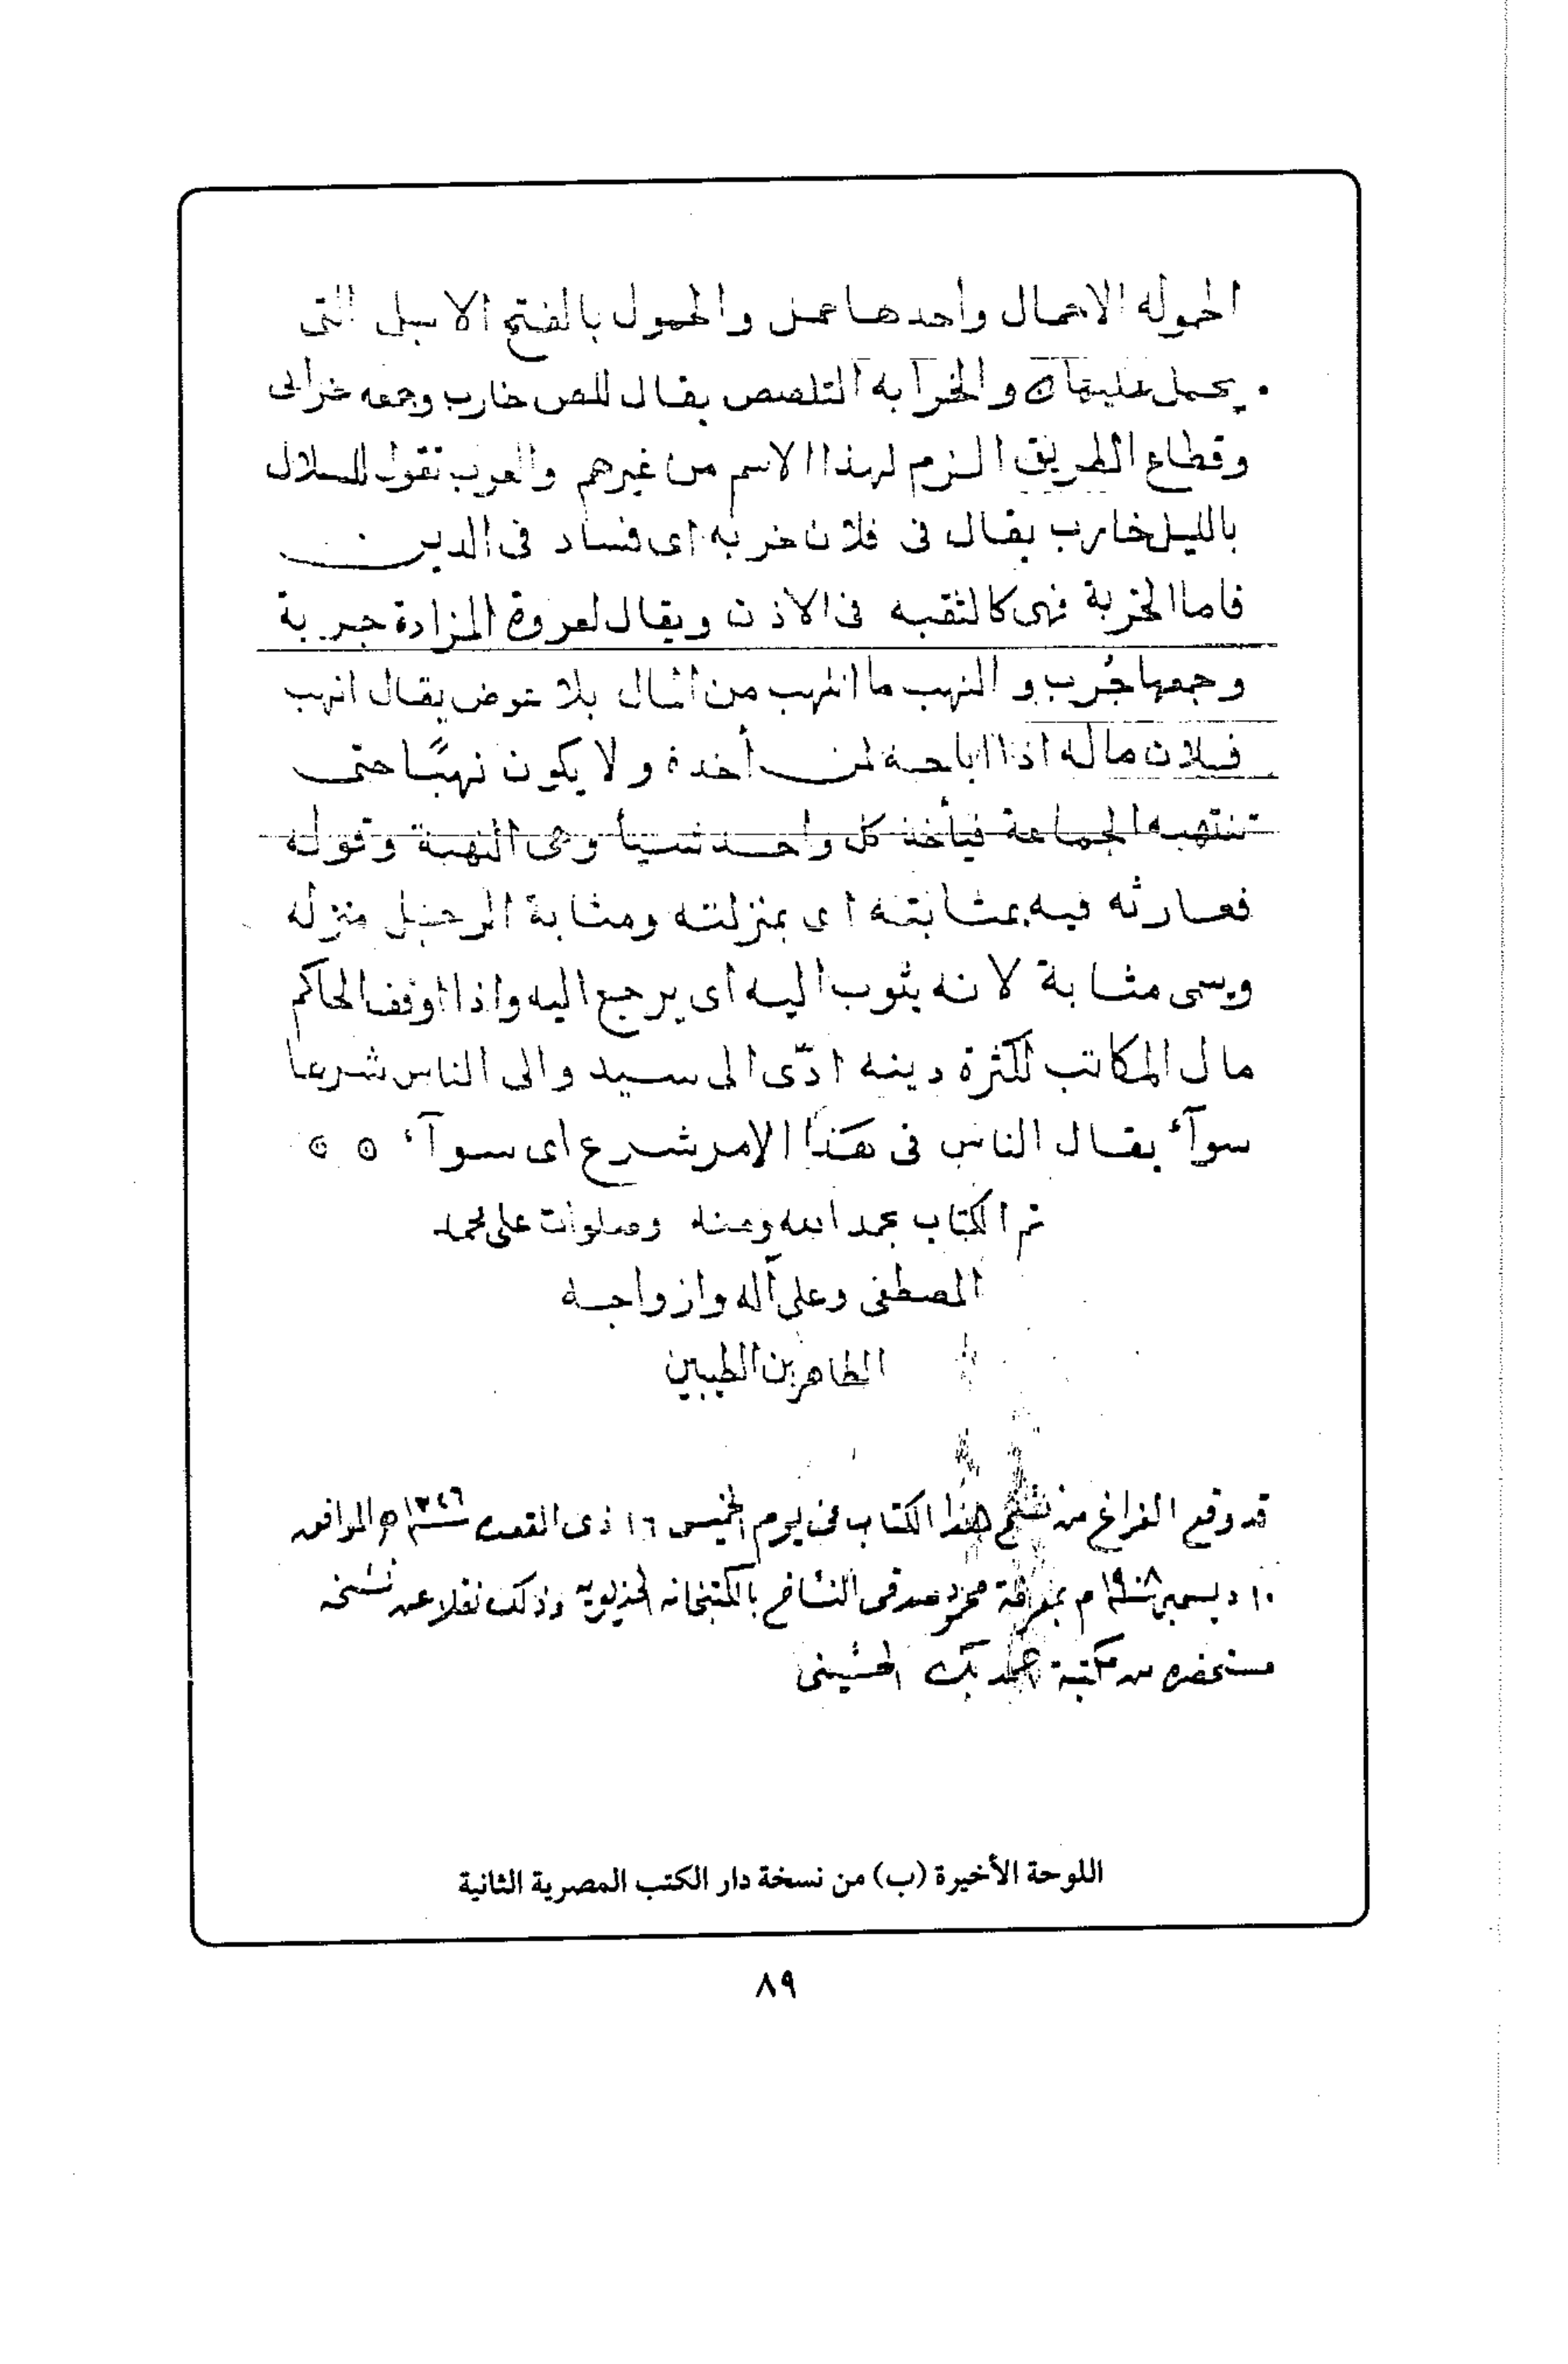 الحموله الاحمال واحدها حمل والحمول بالفتح الابل التى
يحمل عليها والخرابه التلصص يقال للص خارب وجمعه خراب
وقطاع الطريق الزم لهذا الاسم من غيرهم والعرب تقول للسلال
بالليل خارب يقال فى فلان خربه اى فساد فى الدين
فاما الخربة فهى كالثقبه فى الاذن ويقال لعروة المزادة خربة
وجمعها خُرب و النهب ما انتهب من المال بلا عوض يقال انهب
فلان ماله اذا اباحه لمن أخذه ولا يكون نهبًا حتى
تنتهبه الجماعة فيأخذ كل واحد شيأ وهى النهبة وقوله
فعارثه فيه بمثابته اى بمنزلته ومثابة الرجل منزله
ويسمى مثابة لانه يثوب اليه اى يرجع اليه واذا اوقف الحاكم
مال المكاتب لكثرة دينه ادّى الى سيد والى الناس شرعا
سوآء يقال الناس فى هذا الامر شرع اى سوآء
تم الكتاب بحمد الله ومنه وصلوات على محمد
المصطفى وعلى آله وازواجه
الطاهرين الطيبين
قد وقع الفراغ من نسخ هذا الكتاب فى يوم الخميس ١٦ ذى القعدة سنة ١٣٢٦ه الموافق
١٠ ديسمبر ١٩٠٨ م بمعرفة محمود صدقى النساخ بالكتبخانه الخديوية وذلك نقلا عن نسخه
مستحضره من مكتبة احمد بك الحسينى
اللوحة الأخيرة (ب) من نسخة دار الكتب المصرية الثانية
٨٩